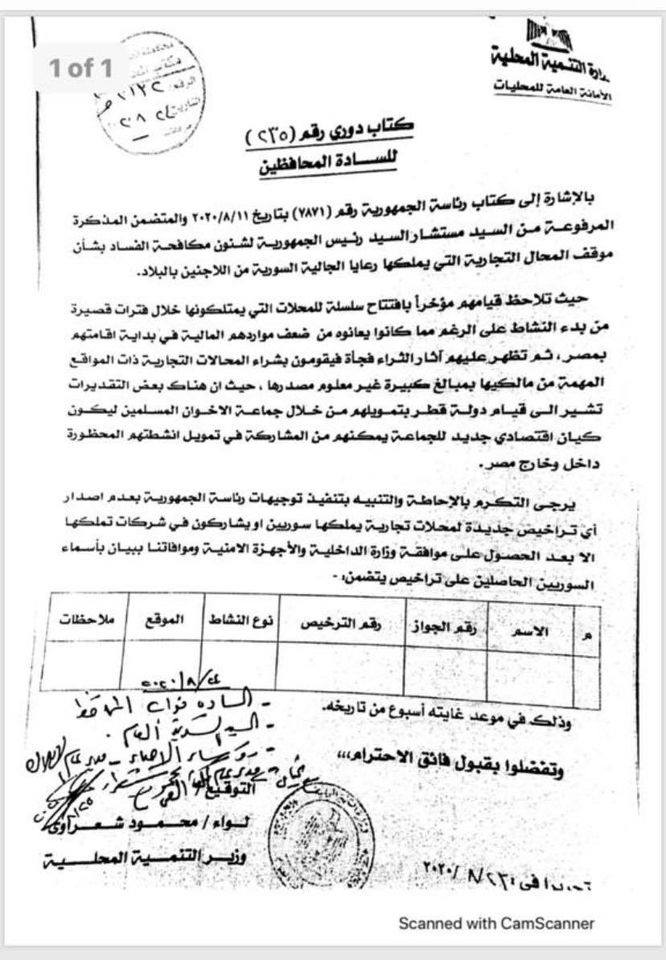 1 of 1
وزارة التنمية المحلية
الأمانة العامة للمحليات
كتاب دوري رقم (٢٣٥)
للسادة المحافظين
بالإشارة إلى كتاب رئاسة الجمهورية رقم (٧٨٧١) بتاريخ ٢٠٢٠/٨/١١ والمتضمن المذكرة
المرفوعة من السيد مستشار السيد رئيس الجمهورية لشئون مكافحة الفساد بشأن
موقف المحال التجارية التي يملكها رعايا الجالية السورية من اللاجئين بالبلاد.
حيث تلاحظ قيامهم مؤخرأ بافتتاح سلسلة للمحلات التي يمتلكونها خلال فترات قصيرة
من بدء النشاط على الرغم مما كانوا يعانوه من ضعف مواردهم المالية في بداية اقامتهم
بمصر ، ثم تظهر عليهم آثار الثراء فجأة فيقومون بشراء المحالات التجارية ذات المواقع
المهمة من مالكيها بمبالغ كبيرة غير معلوم مصدرها ، حيث ان هناك بعض التقديرات
تشير الى قيام دولة قطر بتمويلهم من خلال جماعة الاخوان المسلمين ليكون
كيان اقتصادي جديد للجماعة يمكنهم من المشاركة في تمويل انشطتهم المحظورة
داخل وخارج مصر.
يرجى التكرم بالإحاطة والتنبيه بتنفيذ توجيهات رئاسة الجمهورية بعدم اصدار
أي تراخيص جديدة لمحلات تجارية يملكها سوريين او يشاركون في شركات تملكها
الا بعد الحصول على موافقة وزارة الداخلية والأجهزة الامنية وموافاتنا ببيان بأسماء
السوريين الحاصلين على تراخيص يتضمن: -
م الاسم رقم الجواز رقم الترخيص نوع النشاط الموقع ملاحظات
وذلك في موعد غايته أسبوع من تاريخه.
وتفضلوا بقبول فائق الاحترام،،،
٢٠٢٠/٨/٢٤
- السادة نواب المحافظ
- السيد السكرتير العام
التوقيع
لواء / محمود شعراوى
وزير التنمية المحلية
تحريرا في: ٢٠٢٠/٨/٢٣
Scanned with CamScanner